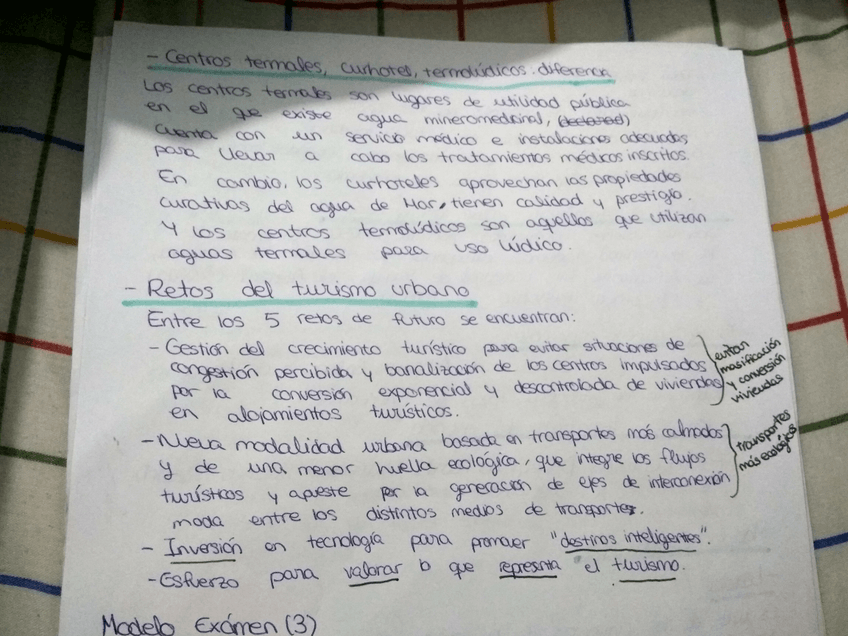 - Centros termales, curhotel, termolúdicos. diferencia
Los centros termales son lugares de utilidad pública
en el que existe agua mineromedicinal, (declarada)
cuenta con un servicio médico e instalaciones adecuadas
para llevar a cabo los tratamientos médicos inscritos.
En cambio, los curhoteles aprovechan las propiedades
curativas del agua de Mar, tienen calidad y prestigio.
Y los centros termolúdicos son aquellos que utilizan
aguas termales para uso lúdico.
- Retos del turismo urbano
Entre los 5 retos de futuro se encuentran:
- Gestión del crecimiento turístico para evitar situaciones de
congestión percibida y banalización de los centros impulsados
por la conversión exponencial y descontrolada de viviendas
en alojamientos turísticos.
evitan
masificación
y conversión
viviendas
- Nueva modalidad urbana basada en transportes más calmados
y de una menor huella ecológica, que integre los flujos
turísticos y apueste por la generación de ejes de interconexión
moda entre los distintos medios de transportes.
transportes
más ecológicos
- Inversión en tecnología para promover "destinos inteligentes".
- Esfuerzo para valorar lo que representa el turismo.
Modelo Exámen (3)